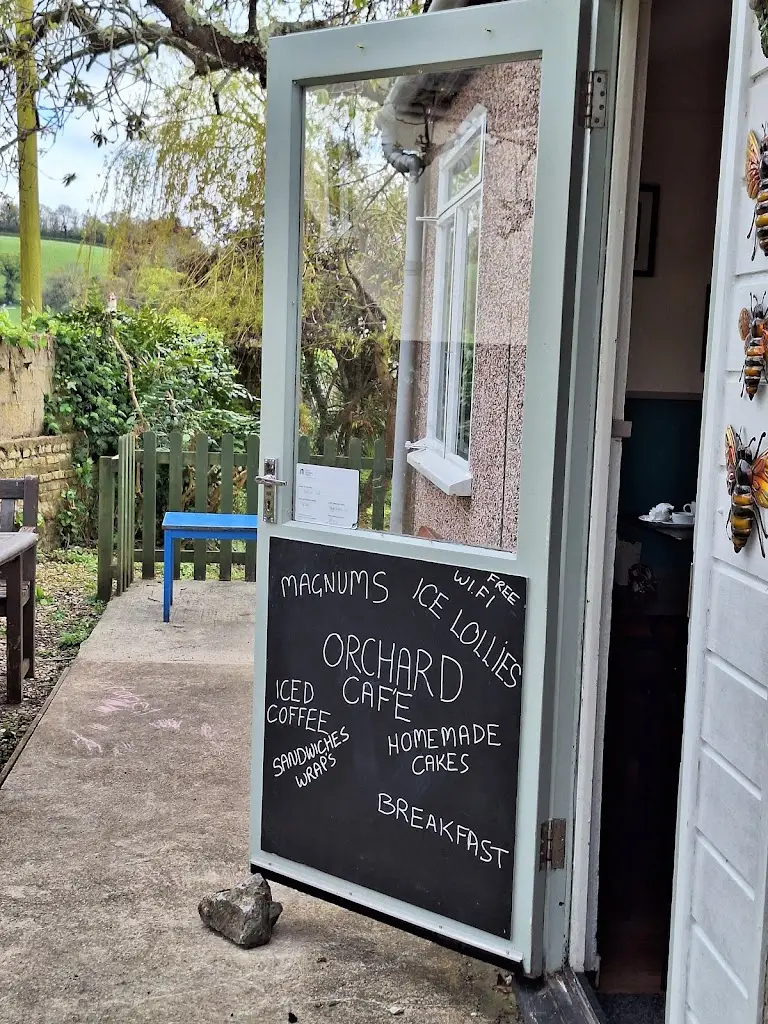 MAGNUMS
FREE
WI.FI
ICE LOLLIES
ORCHARD
CAFÉ
ICED
COFFEE
SANDWICHES
WRAP'S
HOMEMADE
CAKES
BREAKFAST